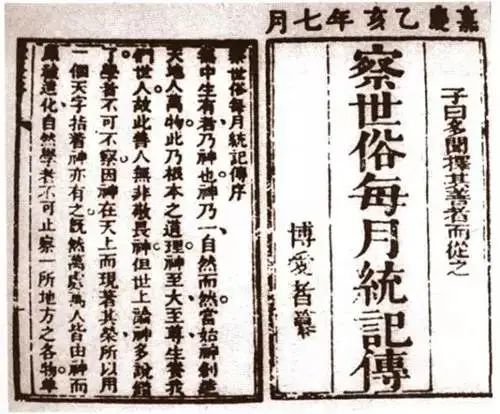 嘉慶乙亥年七月
子曰多聞擇其善者而從之
察世俗每月統記傳
博愛者纂
察世俗每月統記傳序
無中生有者乃神也神乃一自然而然當始神創造
天地人萬物此乃根本之道理神至大至尊生養我
們世人故此善人無非敬畏神但世上論神多說錯
了學者不可不察因神在天上而現著其榮所以用
一個天字指著神亦有之既然萬處萬人皆由神而
原被造化自然學者不可止察一所地方之各物單